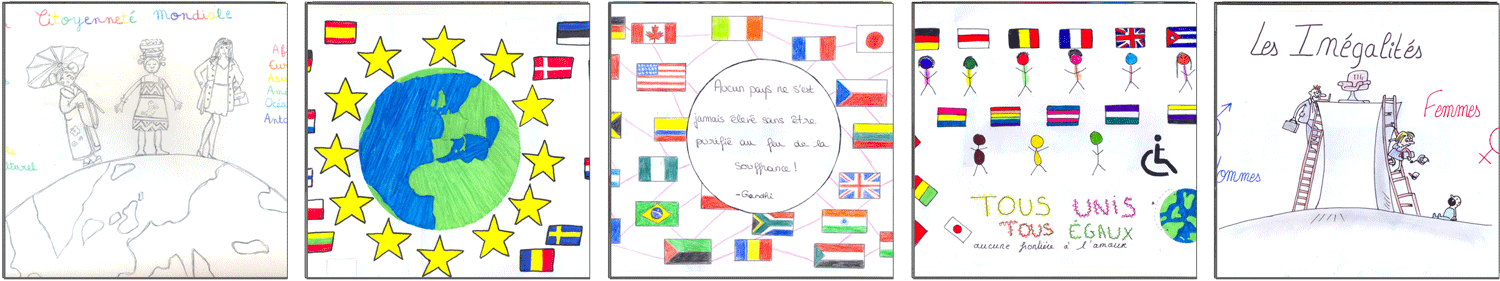 Citoyenneté Mondiale
Af
Eur
Asi
Amé
Océa
Anta
turel
Aucun pays ne s'est
jamais élevé sans être
purifié au feu de la
souffrance !
-Gandhi
TOUS UNIS
TOUS ÉGAUX
aucune frontière à l'amour
Les Inégalités
Femmes
ommes